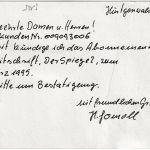 Hürtgenwald
geehrte Damen u. Herren!
Kunden Nr. 009093006
kündige ich das Abonnement
Zeitschrift, Der Spiegel, zum
1995.
Bitte um Bestätigung.
mit freundlichen Gr